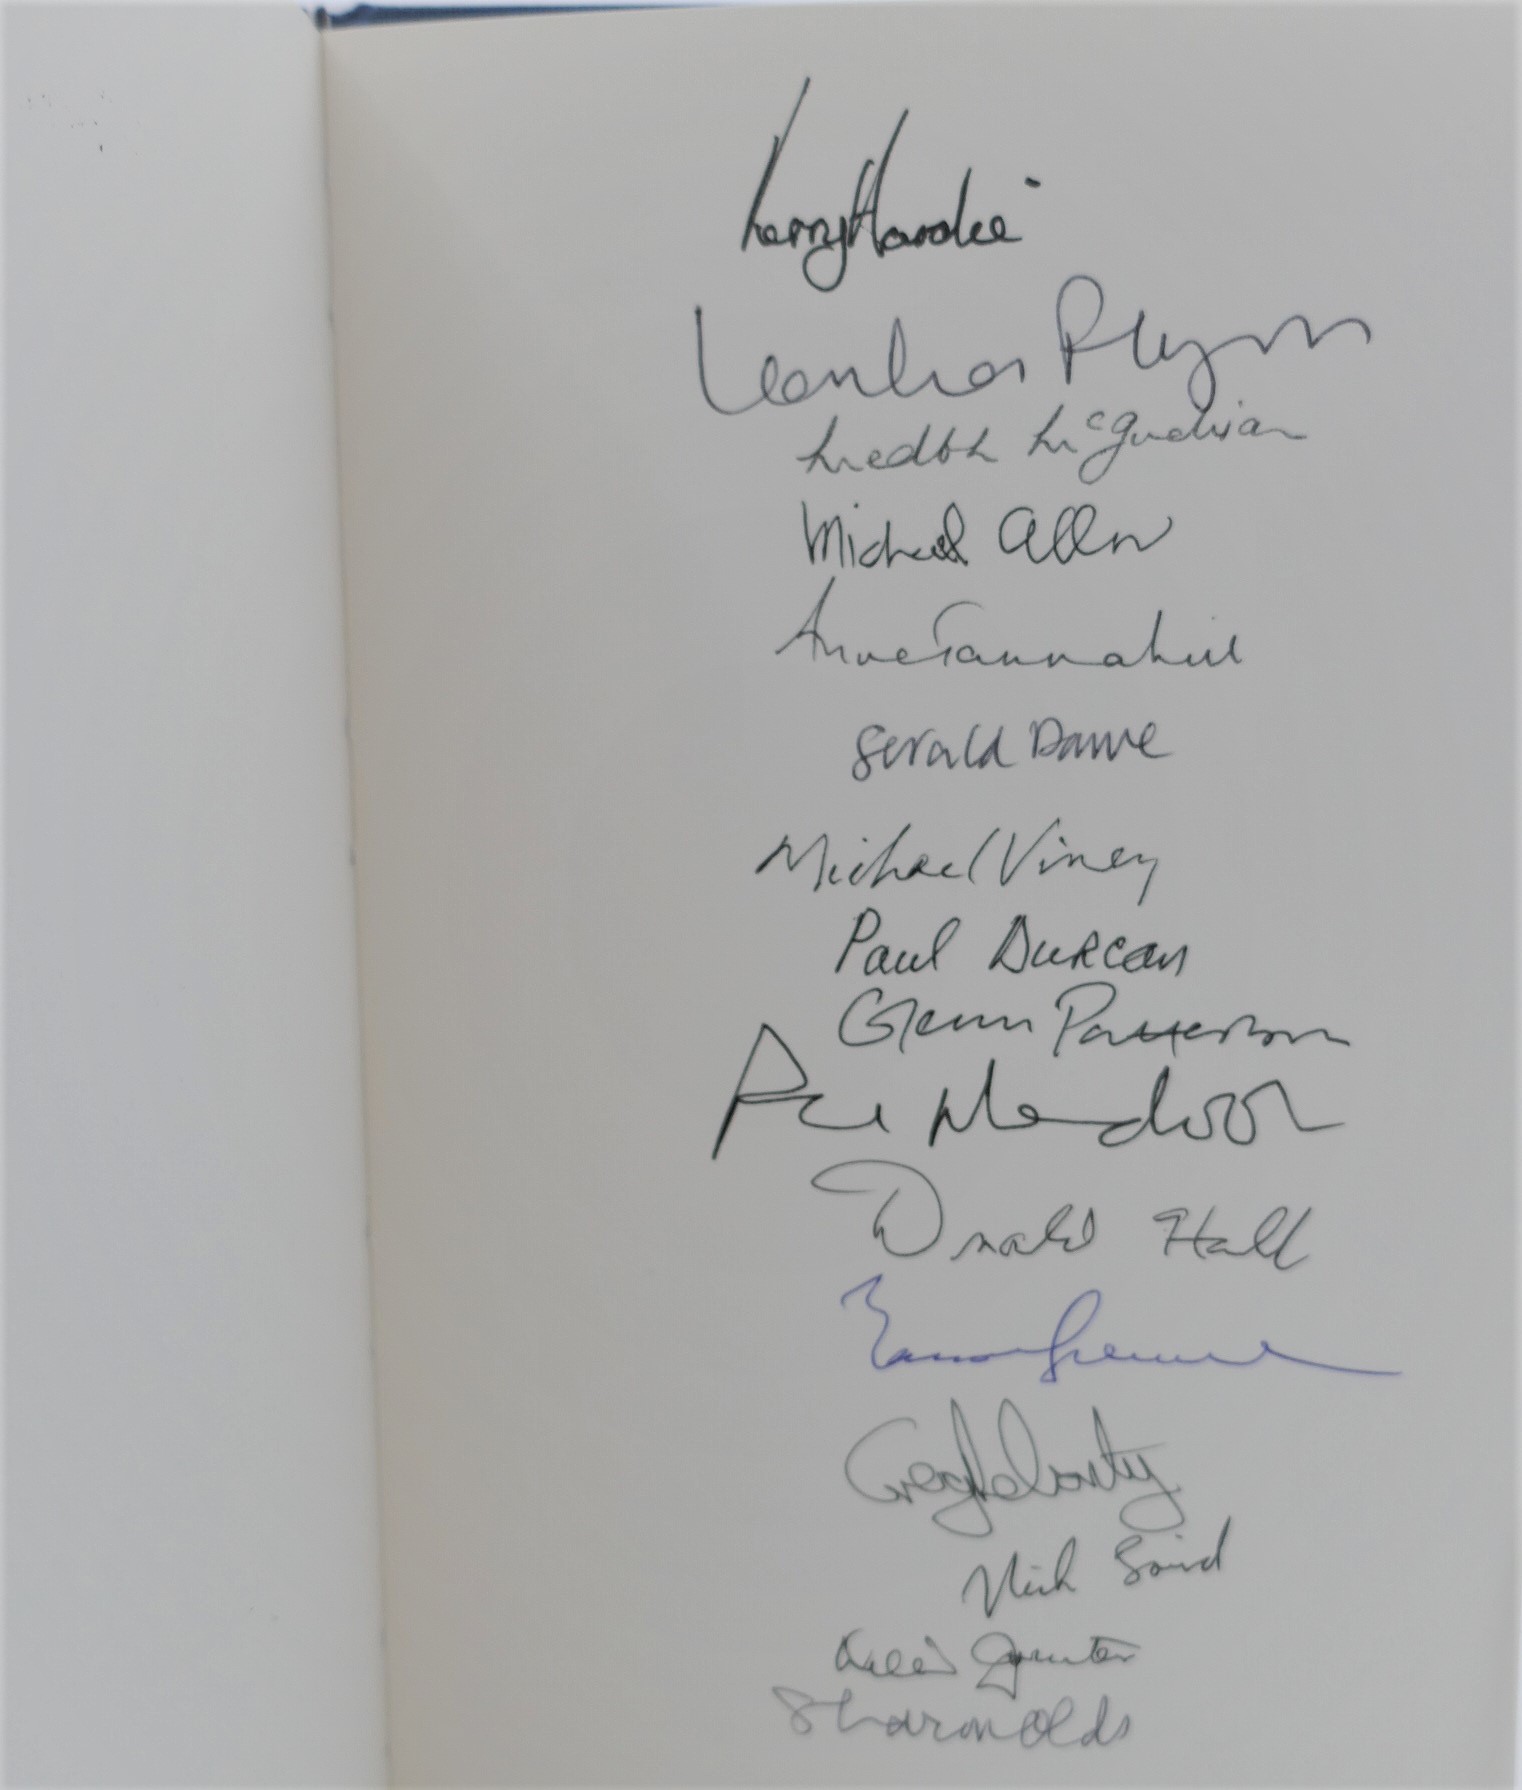 Kerry Hardie
Leontia Flynn
Medbh McGuckian
Michael Allen
Anne Tannahill
Gerald Dawe
Michael Viney
Paul Durcan
Glenn Patterson
Paul Muldoon
Donald Hall
Eamon Grennan
Greg Delanty
Nick Laird
Sharon Olds